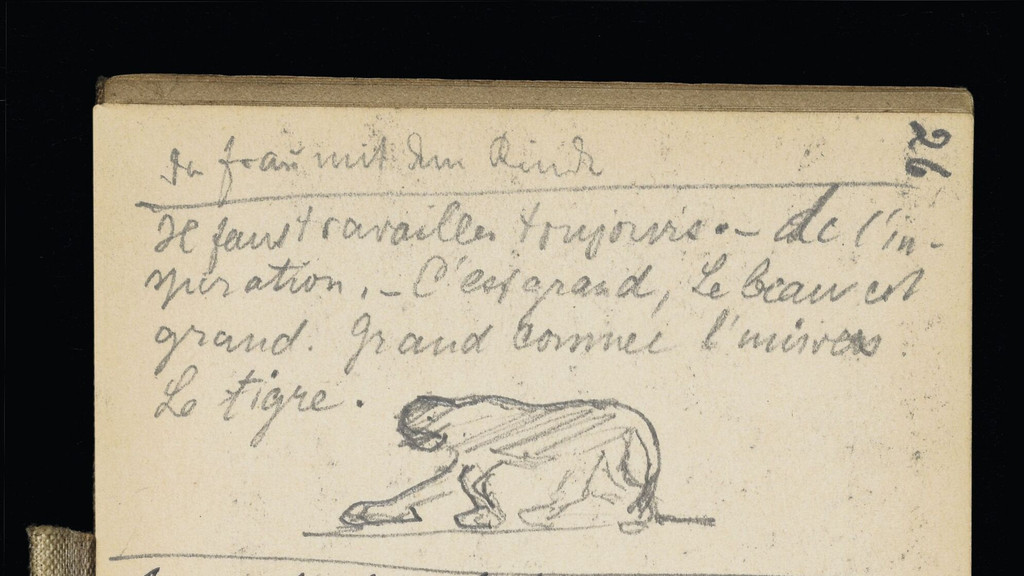 26
Da frau mit dem Kinde
Il faus travailler toujours. – de l'in-
spiration, – C'est grand, Le beau est
grand. Grand comme l'univers
Le tigre.